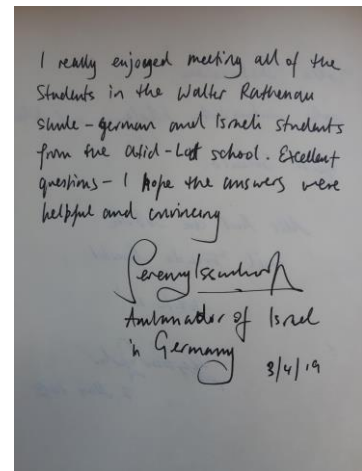 I really enjoyed meeting all of the
Students in the Walter Rathenau
shule - german and Israeli students
from the Atid-Lod school. Excellent
questions - I hope the answers were
helpful and convincing
Jeremy Issacharoff
Ambassador of Israel
in Germany
3/4/19